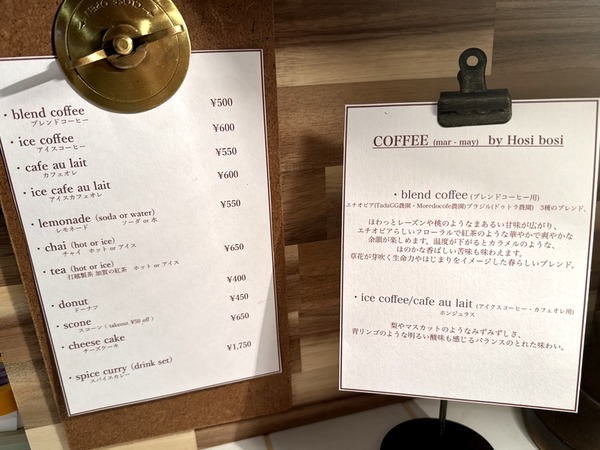 ・blend coffee ¥500
ブレンドコーヒー
・ice coffee ¥600
アイスコーヒー
・cafe au lait ¥550
カフェオレ
・ice cafe au lait ¥600
アイスカフェオレ
・lemonade (soda or water) ¥550
レモネード ソーダ or 水
・chai (hot or ice)
チャイ ホット or アイス
・tea (hot or ice) ¥650
打越製茶 加賀の紅茶 ホット or アイス
・donut ¥400
ドーナツ
・scone ¥450
スコーン ( takeout ¥50 off )
・cheese cake ¥650
チーズケーキ
・spice curry (drink set) ¥1,750
スパイスカレー
COFFEE (mar - may) by Hosi bosi
・blend coffee (ブレンドコーヒー用)
エチオピア(TadaGG農園・Moredocofe農園)ブラジル(ドゥトラ農園) 3種のブレンド。
ほわっとレーズンや桃のようなまあるい甘味が広がり、
エチオピアらしいフローラルで紅茶のような華やかで爽やかな
余韻が楽しめます。温度が下がるとカラメルのような、
ほのかな香ばしい苦味も味わえます。
草花が芽吹く生命力やはじまりをイメージした春らしいブレンド。
・ice coffee/cafe au lait (アイスコーヒー・カフェオレ用)
ホンジュラス
梨やマスカットのようなみずみずしさ、
青リンゴのような明るい酸味も感じるバランスのとれた味わい。